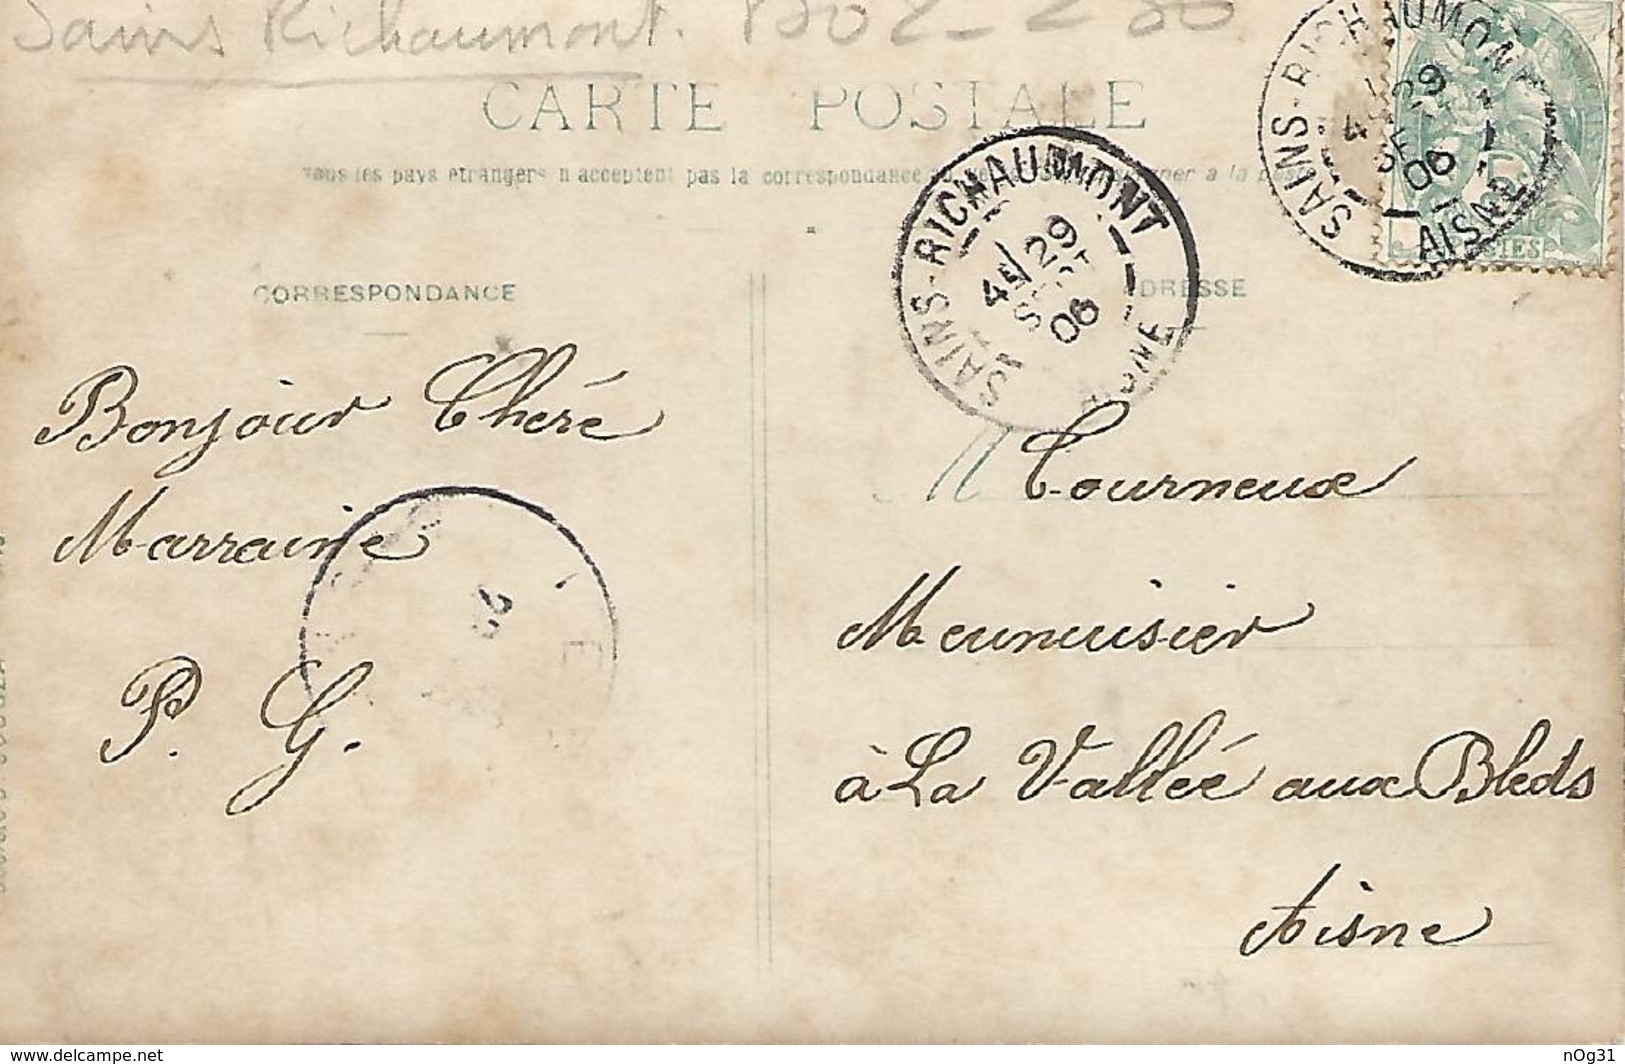 Sains Richaumont.
CARTE POSTALE
Tous les pays étrangers n'acceptent pas la correspondance
SAINS-RICHAUMONT
4E 29
SEPT
06
AISNE
SAINS-RICHAUMONT
4 29
06
AISNE
5
POSTES
CORRESPONDANCE
ADRESSE
Bonjour Cheré
Marraine
P. G.
M Tourneux
Menuisier
à La Vallée aux Bleds
Aisne
www.delcampe.net
nOg31